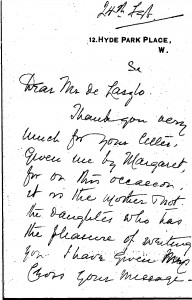 24th Feb.
12. HYDE PARK PLACE,
W.
Dear Mr de Laszlo.
Thank you very
much for your letter,
Given me by Margaret,
for on this occasion
it is the mother & not
the daughter who has
the pleasure of writing
you. I have given Mrs
Cross your message.